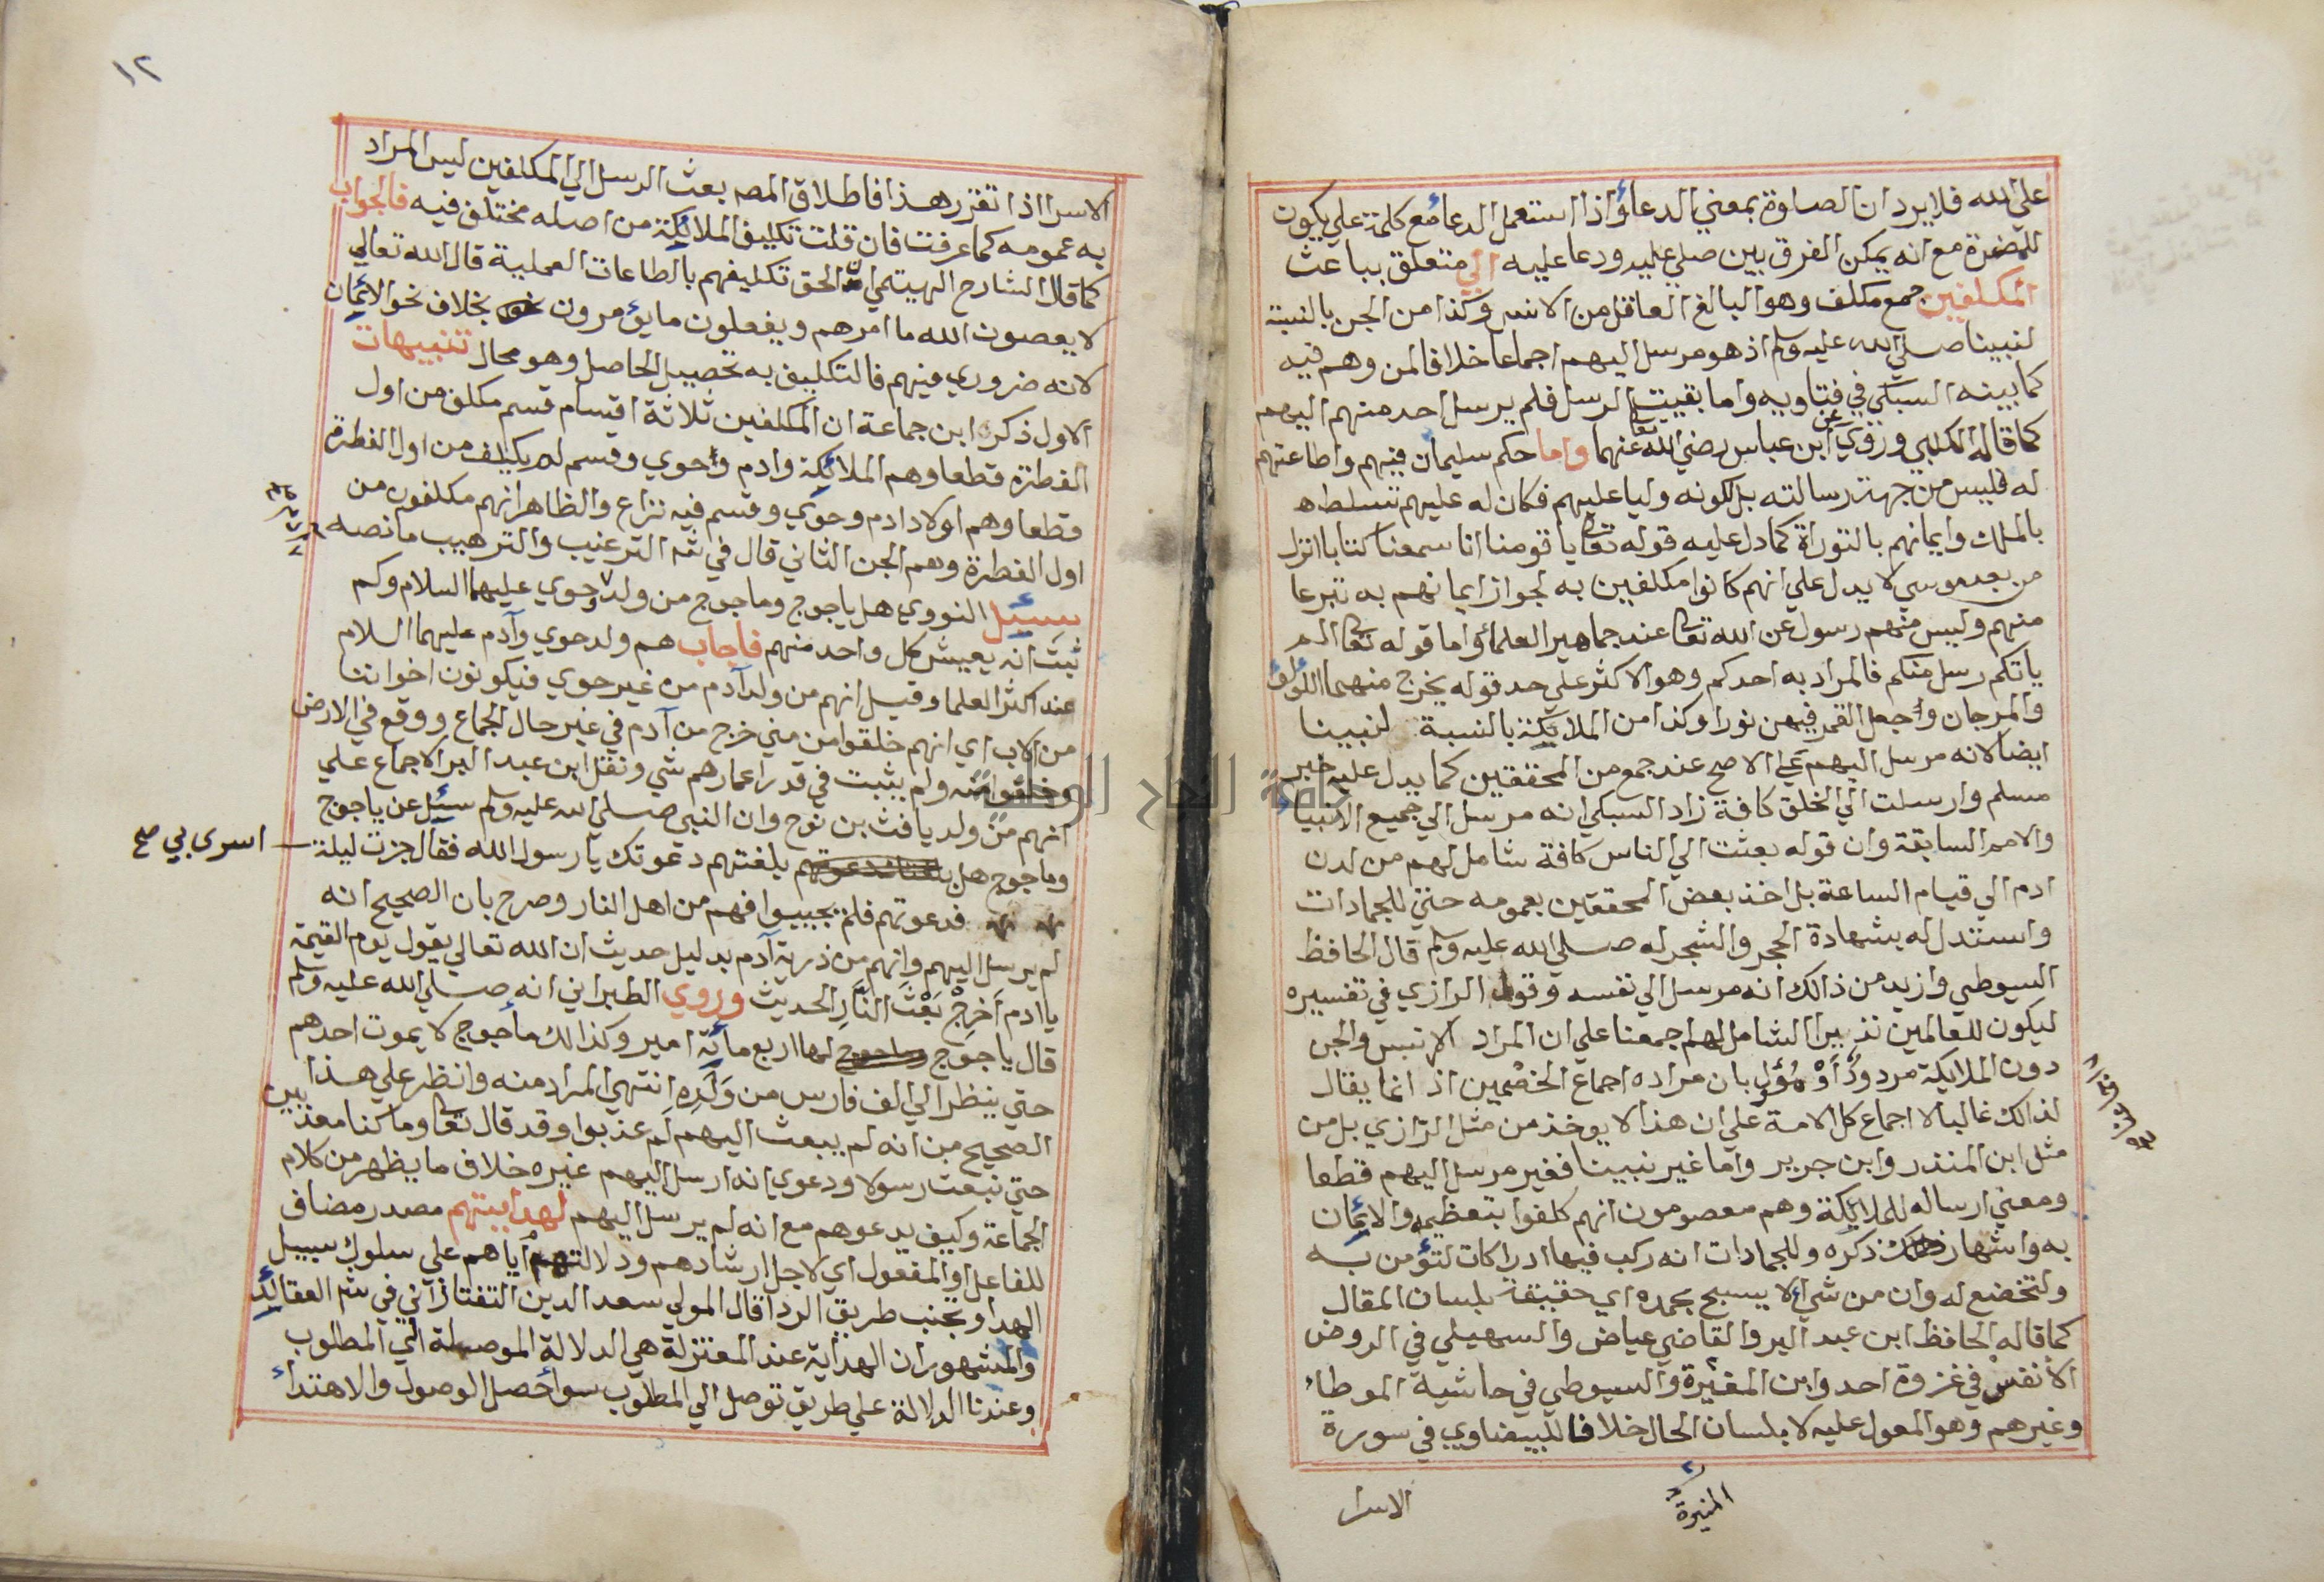 علي الله فلا يرد ان الصلوة بمعني الدعاؤ اذا استعمل الدعا مع كلمة علي يكون
للمضرة مع انه يمكن الفرق بين صلي عليه ودعا عليه الي متعلق بباعث
المكلفين جمع مكلف وهو البالغ العاقل من الانس وكذا من الجن بالنسبة
لنبينا صلي الله عليه وسلم اذ هو مرسل اليهم اجماعا خلافا لمن وهم فيه
كما بينه السبكي في فتاويه واما بقيت الرسل فلم يرسل احد منهم اليهم
كما قاله الكلبي وروي عن ابن عباس رضي الله تعا عنهما واما حكم سليمان فيهم واطاعتهم
له فليس من جهة رسالته بل لكونه وليا عليهم فكان له عليهم تسلط
بالملك وايمانهم بالتوراة كما دل عليه قوله تعا يا قومنا انا سمعنا كتابا انزل
من بعد موسي لا يدل علي انهم كانوا مكلفين به لجواز ايمانهم به تبرعا
منهم وليس منهم رسول عن الله تعا عند جماهير العلماؤ اما قوله تعا الم
ياتكم رسل منكم فالمراد به احدكم وهو الاكثر علي حد قوله يخرج منهما اللؤلؤ
والمرجان وجعل القمر فيهن نورا وكذا من الملايكة بالنسبة لنبينا
ايضا لانه مرسل اليهم علي الاصح عند جمع من المحققين كما يدل عليه خبر
مسلم وارسلت الي الخلق كافة زاد السبكي انه مرسل الي جميع الانبياء
والامم السابقة وان قوله بعثت الي الناس كافة شامل لهم من لدن
ادم الي قيام الساعة بل اخذ بعض المحققين بعمومه حتي للجمادات
واستدل له بشهادة الحجر والشجر له صلي الله عليه وسلم قال الحافظ
السيوطي وازيد من ذالك انه مرسل الي نفسه وقول الرازي في تفسيره
ليكون للعالمين نذيرا الشامل لهم اجمعنا علي ان المراد الانس والجن
دون الملايكة مردودٌ اَوْ مُؤَل بان مراده اجماع الخصْمين اذ انما يقال
لذالك غالبا لا اجماع كل الامة علي ان هذا لا يوخذ من مثل الرازي بل من
مثل ابن المنذر وابن جرير واما غير نبينا فغير مرسل اليهم قطعا
ومعني ارساله للملائكة وهم معصومون انهم كلفوا بتعظيمه والايمان
به واشهار ذكره وللجمادات انه ركب فيها ادراكات لتؤمن به
ولتخضع له وان من شئ الا يسبح بحمده اي حقيقة بلسان المقال
كما قاله الحافظ ابن عبد البر والقاضي عياض والسهيلي في الروض
الانفس في غزوة احد وابن المنيرة والسيوطي في حاشية الموطاء
وغيرهم وهو المعول عليه لا بلسان الحال خلافا للبيضاوي في سورة
المنيرة
الاسرا
١٢
الاسرا اذا تقرر هذا فاطلاق المصه بعث الرسل الي المكلفين ليس المراد
به عمومه كما عرفت فان قلت تكليف الملائكة من اصله مختلف فيه فالجواب
كما قال الشارح الهيتمي ان الحق تكليفهم بالطاعات العملية قال الله تعالي
لا يعصون الله ما امرهم ويفعلون ما يؤمرون بخلاف نحو الايمان
لانه ضروري فيهم فالتكليف به تحصيل الحاصل وهو محال تنبيهات
الاول ذكر ابن جماعة ان المكلفين ثلاثة اقسام قسم مكلف من اول
الفطرة قطعا وهم الملائكة وادم وحوي وقسم لم يكلف من اول الفطرة
قطعا وهم اولاد ادم وحوي وقسم فيه نزاع والظاهر انهم مكلفون من
اول الفطرة وهم الجن الثاني قال في شه الترغيب والترهيب ما نصه
سئيل النووي هل ياجوج وماجوج من ولد حوي عليهما السلام وكم
ثبت انه يعيش كل واحد منهم فاجاب هم ولد حوي وآدم عليهما السلام
عند اكثر العلما وقيل انهم من ولد آدم من غير حوي فيكونون اخواننا
من الاب اي انهم خلقوا من مني خرج من آدم في غير حال الجماع ووقع في الارض
وخلقوا منه ولم يثبت في قدر اعمارهم شي ونقل ابن عبد البر الاجماع علي
انهم من ولد يافث بن نوح وان النبي صلي الله عليه وسلم سئيل عن ياجوج
وماجوج هل بلغتهم دعوتك يا رسول الله فقال جزت ليلة
اسري بي صح
فدعوتهم فلم يجيبوا فهم من اهل النار وصرح بان الصحيح انه
لم يرسل اليهم وانهم من ذرية آدم بدليل حديث ان الله تعالي يقول يوم القيمة
يا ادم اَخرِجْ بَعْثَ النَّارِ الحديث وروي الطبراني انه صلي الله عليه وسلم
قال ياجوج لها اربع مائة امير وكذالك مأجوج لا يموت احدهم
حتي ينظر الي الف فارس من وَلَدِهِ انتهي المراد منه وانظر علي هذا
الصحيح من انه لم يبعث اليهم لَم عذبوا وقد قال تعا وما كنا معذبين
حتي نبعث رسولا ودعوي انه ارسل اليهم غيره خلاف ما يظهر من كلام
الجماعة وكيف يدعوهم مع انه لم يرسل اليهم لهدايتهم مصدر مضاف
للفاعل او المفعول اي لاجل ارشادهم ودلالتهم اياهم علي سلوك سبيل
الهدا وتجنب طريق الردا قال المولي سعد الدين التفتازاني في شه العقائد
والمشهور ان الهداية عند المعتزلة هي الدلالة الموصلة الي المطلوب
وعندنا الدلالة علي طريق توصل الي المطلوب سوا حصل الوصول والاهتداء